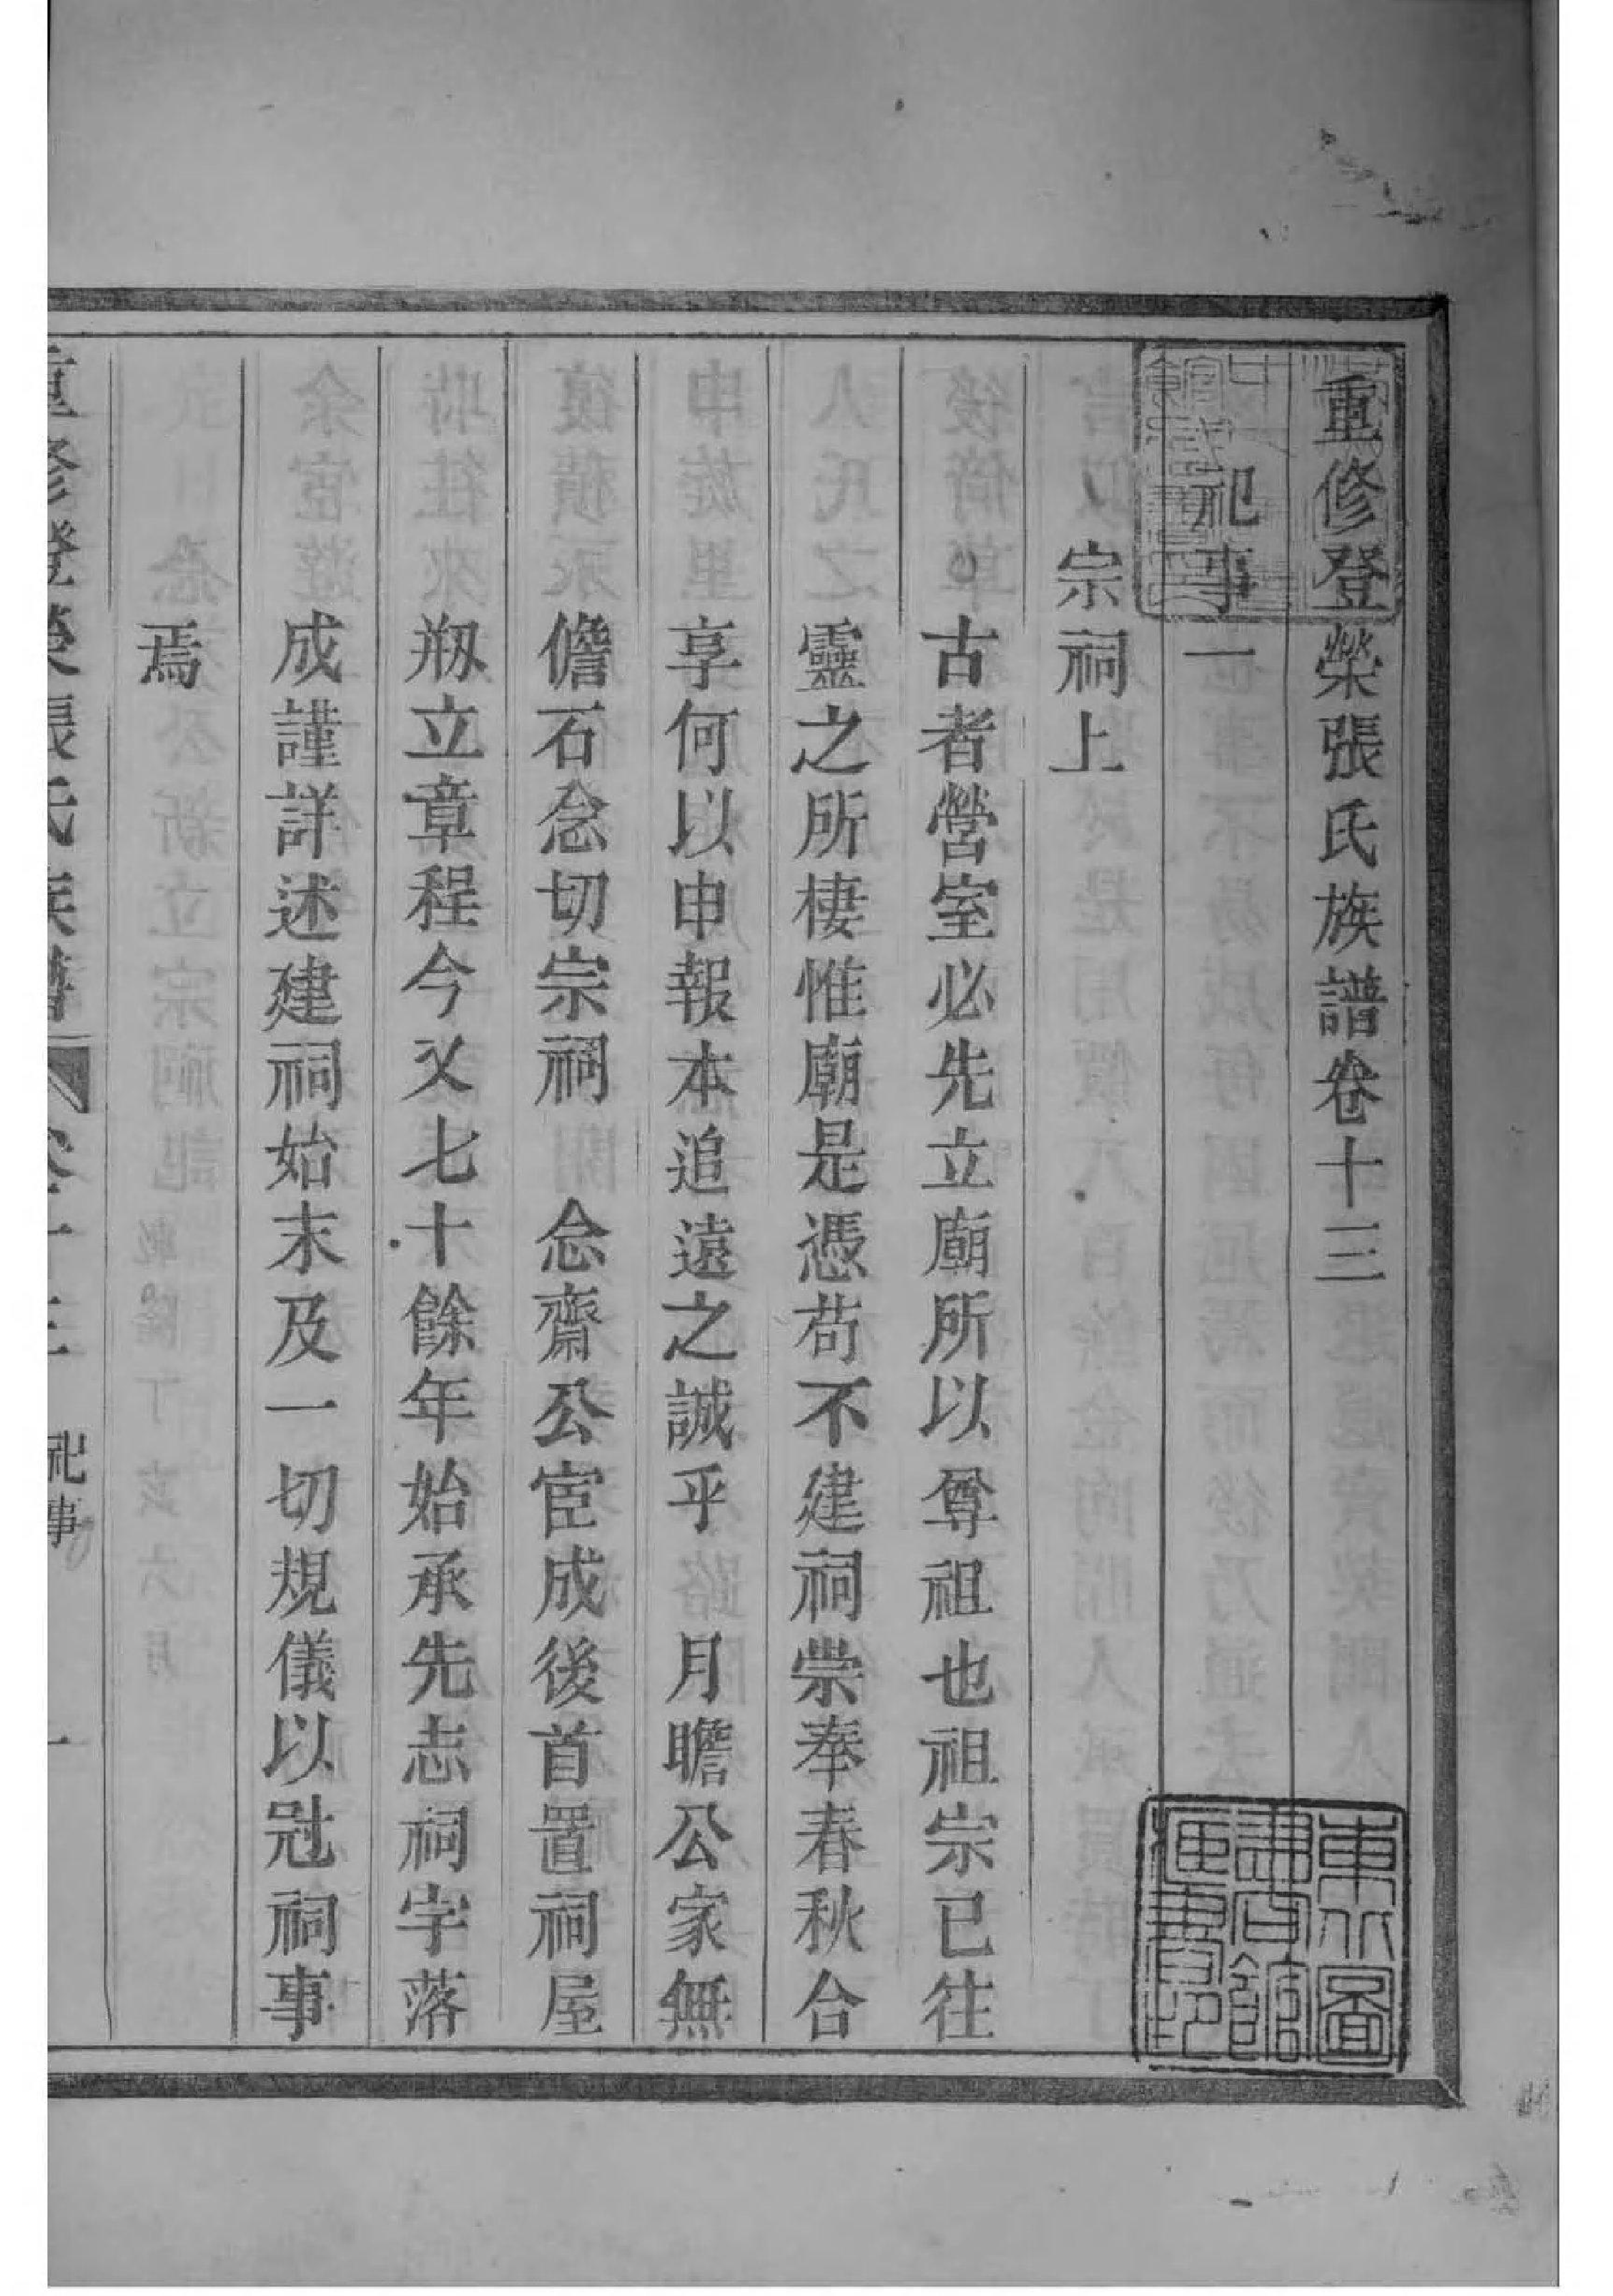 重修登榮張氏族譜卷十三
祀事一
宗祠上
古者營室必先立廟所以尊祖也祖宗已往
靈之所棲惟廟是憑苟不建祠崇奉春秋合
享何以申報本追遠之誠乎 月瞻公家無
儋石念切宗祠 念齋公宦成後首置祠屋
剏立章程今又七十餘年始承先志祠宇落
成謹詳述建祠始末及一切規儀以冠祠事
焉
重修登榮張氏族譜 卷十三 祀事 一